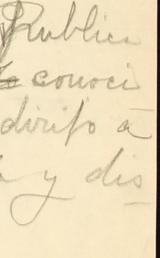 Publica
conoci
dirijo á
y dis